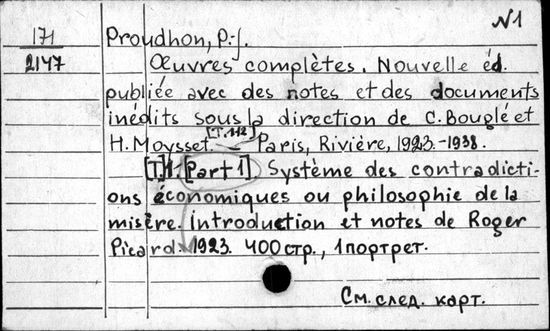 N1
171
2147
Proudhon, P.-J.
Œuvres complètes. Nouvelle éd.
publiée avec des notes et des documents
inédits sous la direction de C. Bouglé et
H. Moysset. [T. 1-12] – Paris, Rivière, 1923.-1938.
[T] 1. [Part 1] Système des contradicti-
ons économiques ou philosophie de la
misère. Introduction et notes de Roger
Picard. 1923. 400 стр., 1 портрет.
См. след. карт.